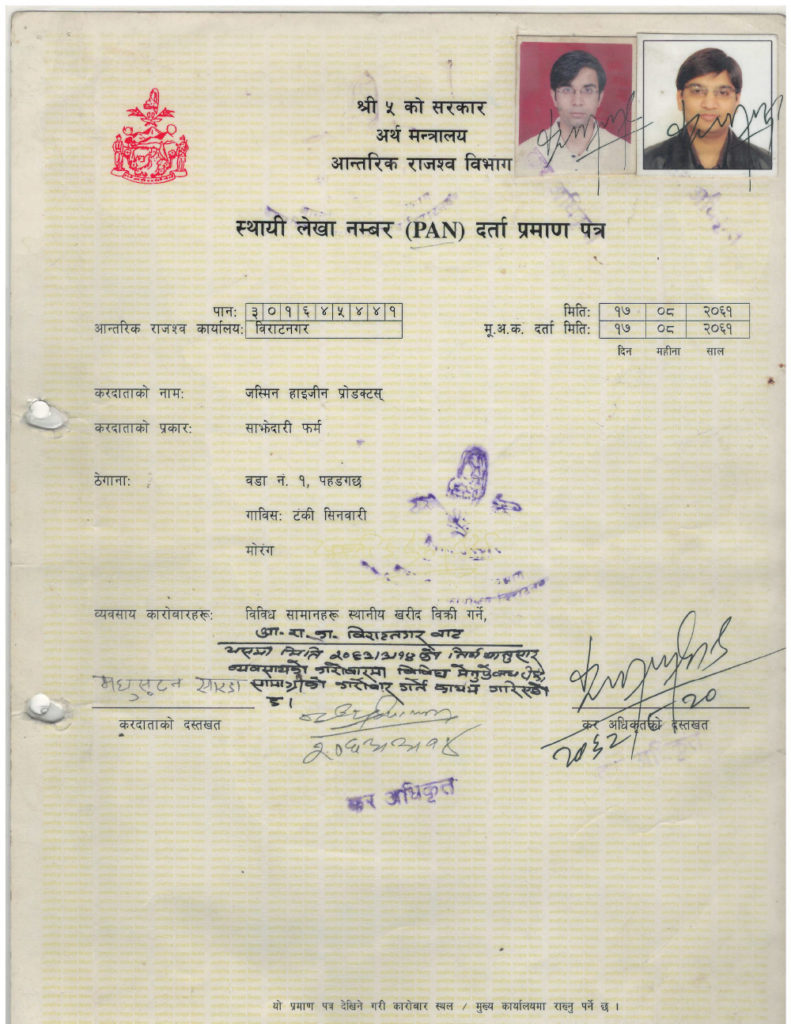 श्री ५ को सरकार
अर्थ मन्त्रालय
आन्तरिक राजश्व विभाग
स्थायी लेखा नम्बर (PAN) दर्ता प्रमाण पत्र
पान: ३ ० १ ६ ४ ५ ४ ४ १
मिति: १७ ०८ २०६१
आन्तरिक राजश्व कार्यालय: विराटनगर
मू.अ.क. दर्ता मिति: १७ ०८ २०६१
दिन महीना साल
करदाताको नाम: जस्मिन हाइजीन प्रोडक्टस्
करदाताको प्रकार: साझेदारी फर्म
ठेगाना: वडा नं. १, पहडगछ
गाविस: टंकी सिनवारी
मोरंग
व्यवसाय कारोबारहरू: विविध सामानहरू स्थानीय खरीद विक्री गर्ने,
आ. रा. का. विराटनगर बाट
यसमा मिति
व्यवसायको कारोबारमा विविध
सामाग्रीको कारोबार गर्ने कायम गरिएको
छ।
मधुसुदन सारडा
करदाताको दस्तखत
कर अधिकृतको दस्तखत
कर अधिकृत
यो प्रमाण पत्र देखिने गरी कारोबार स्थल / मुख्य कार्यालयमा राख्नु पर्ने छ ।